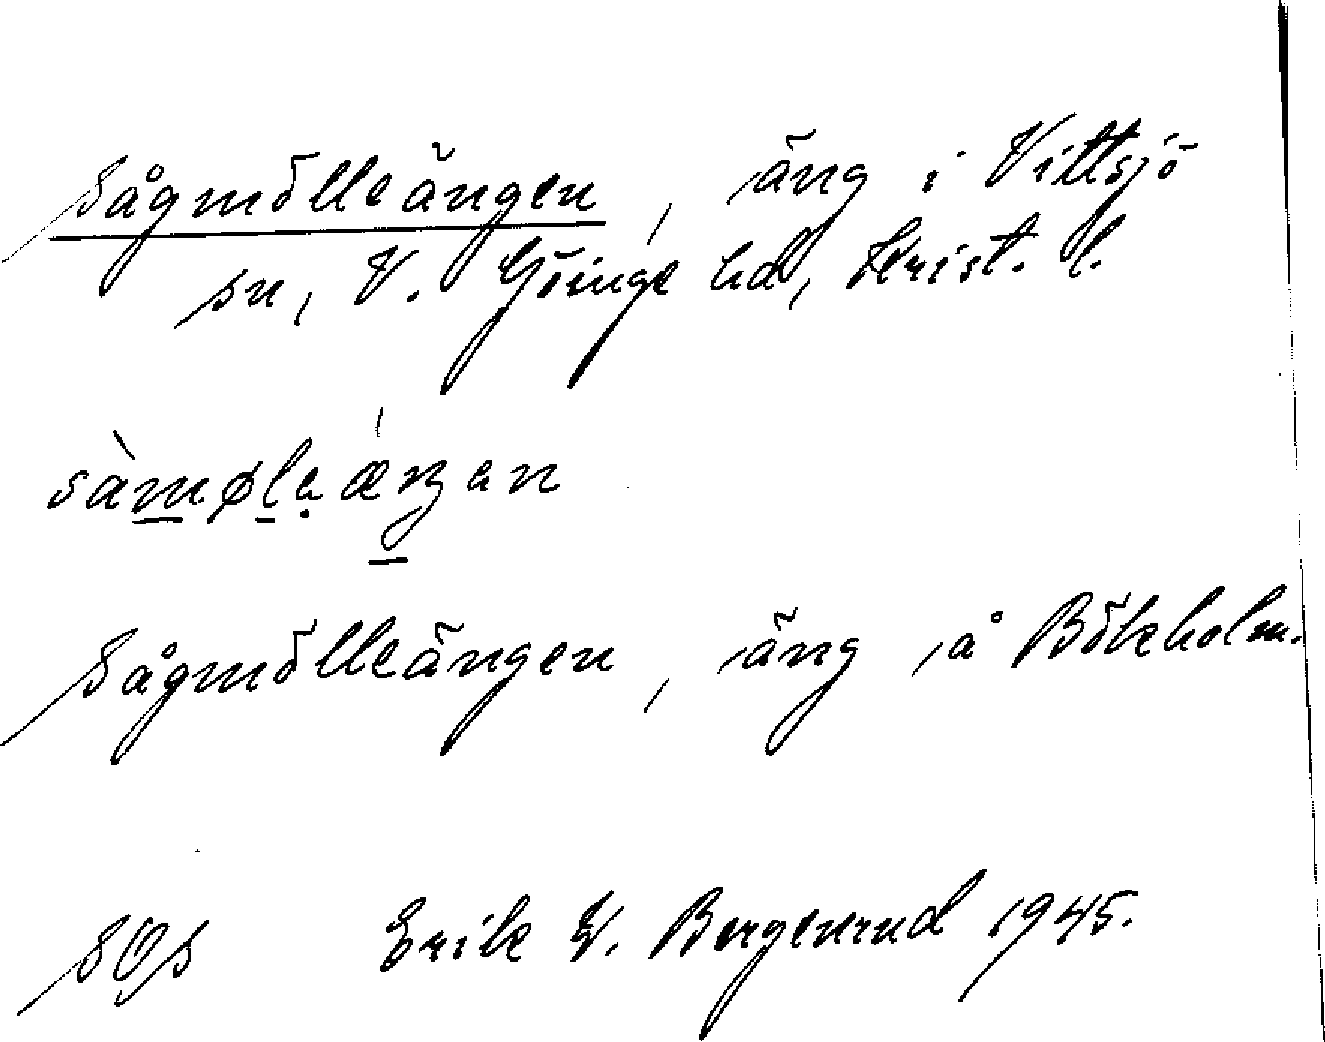 Sågmölleängen, äng i Vittsjö
sn, V. Göinge hd, Krist. l.
sàmøleæŋen
Sågmölleängen, äng å Bökeholm.
SOS Erik W. Bergenrud 1945.